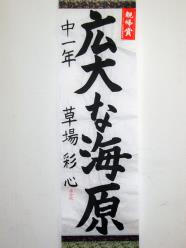 広大な海原
中一年
草場彩心